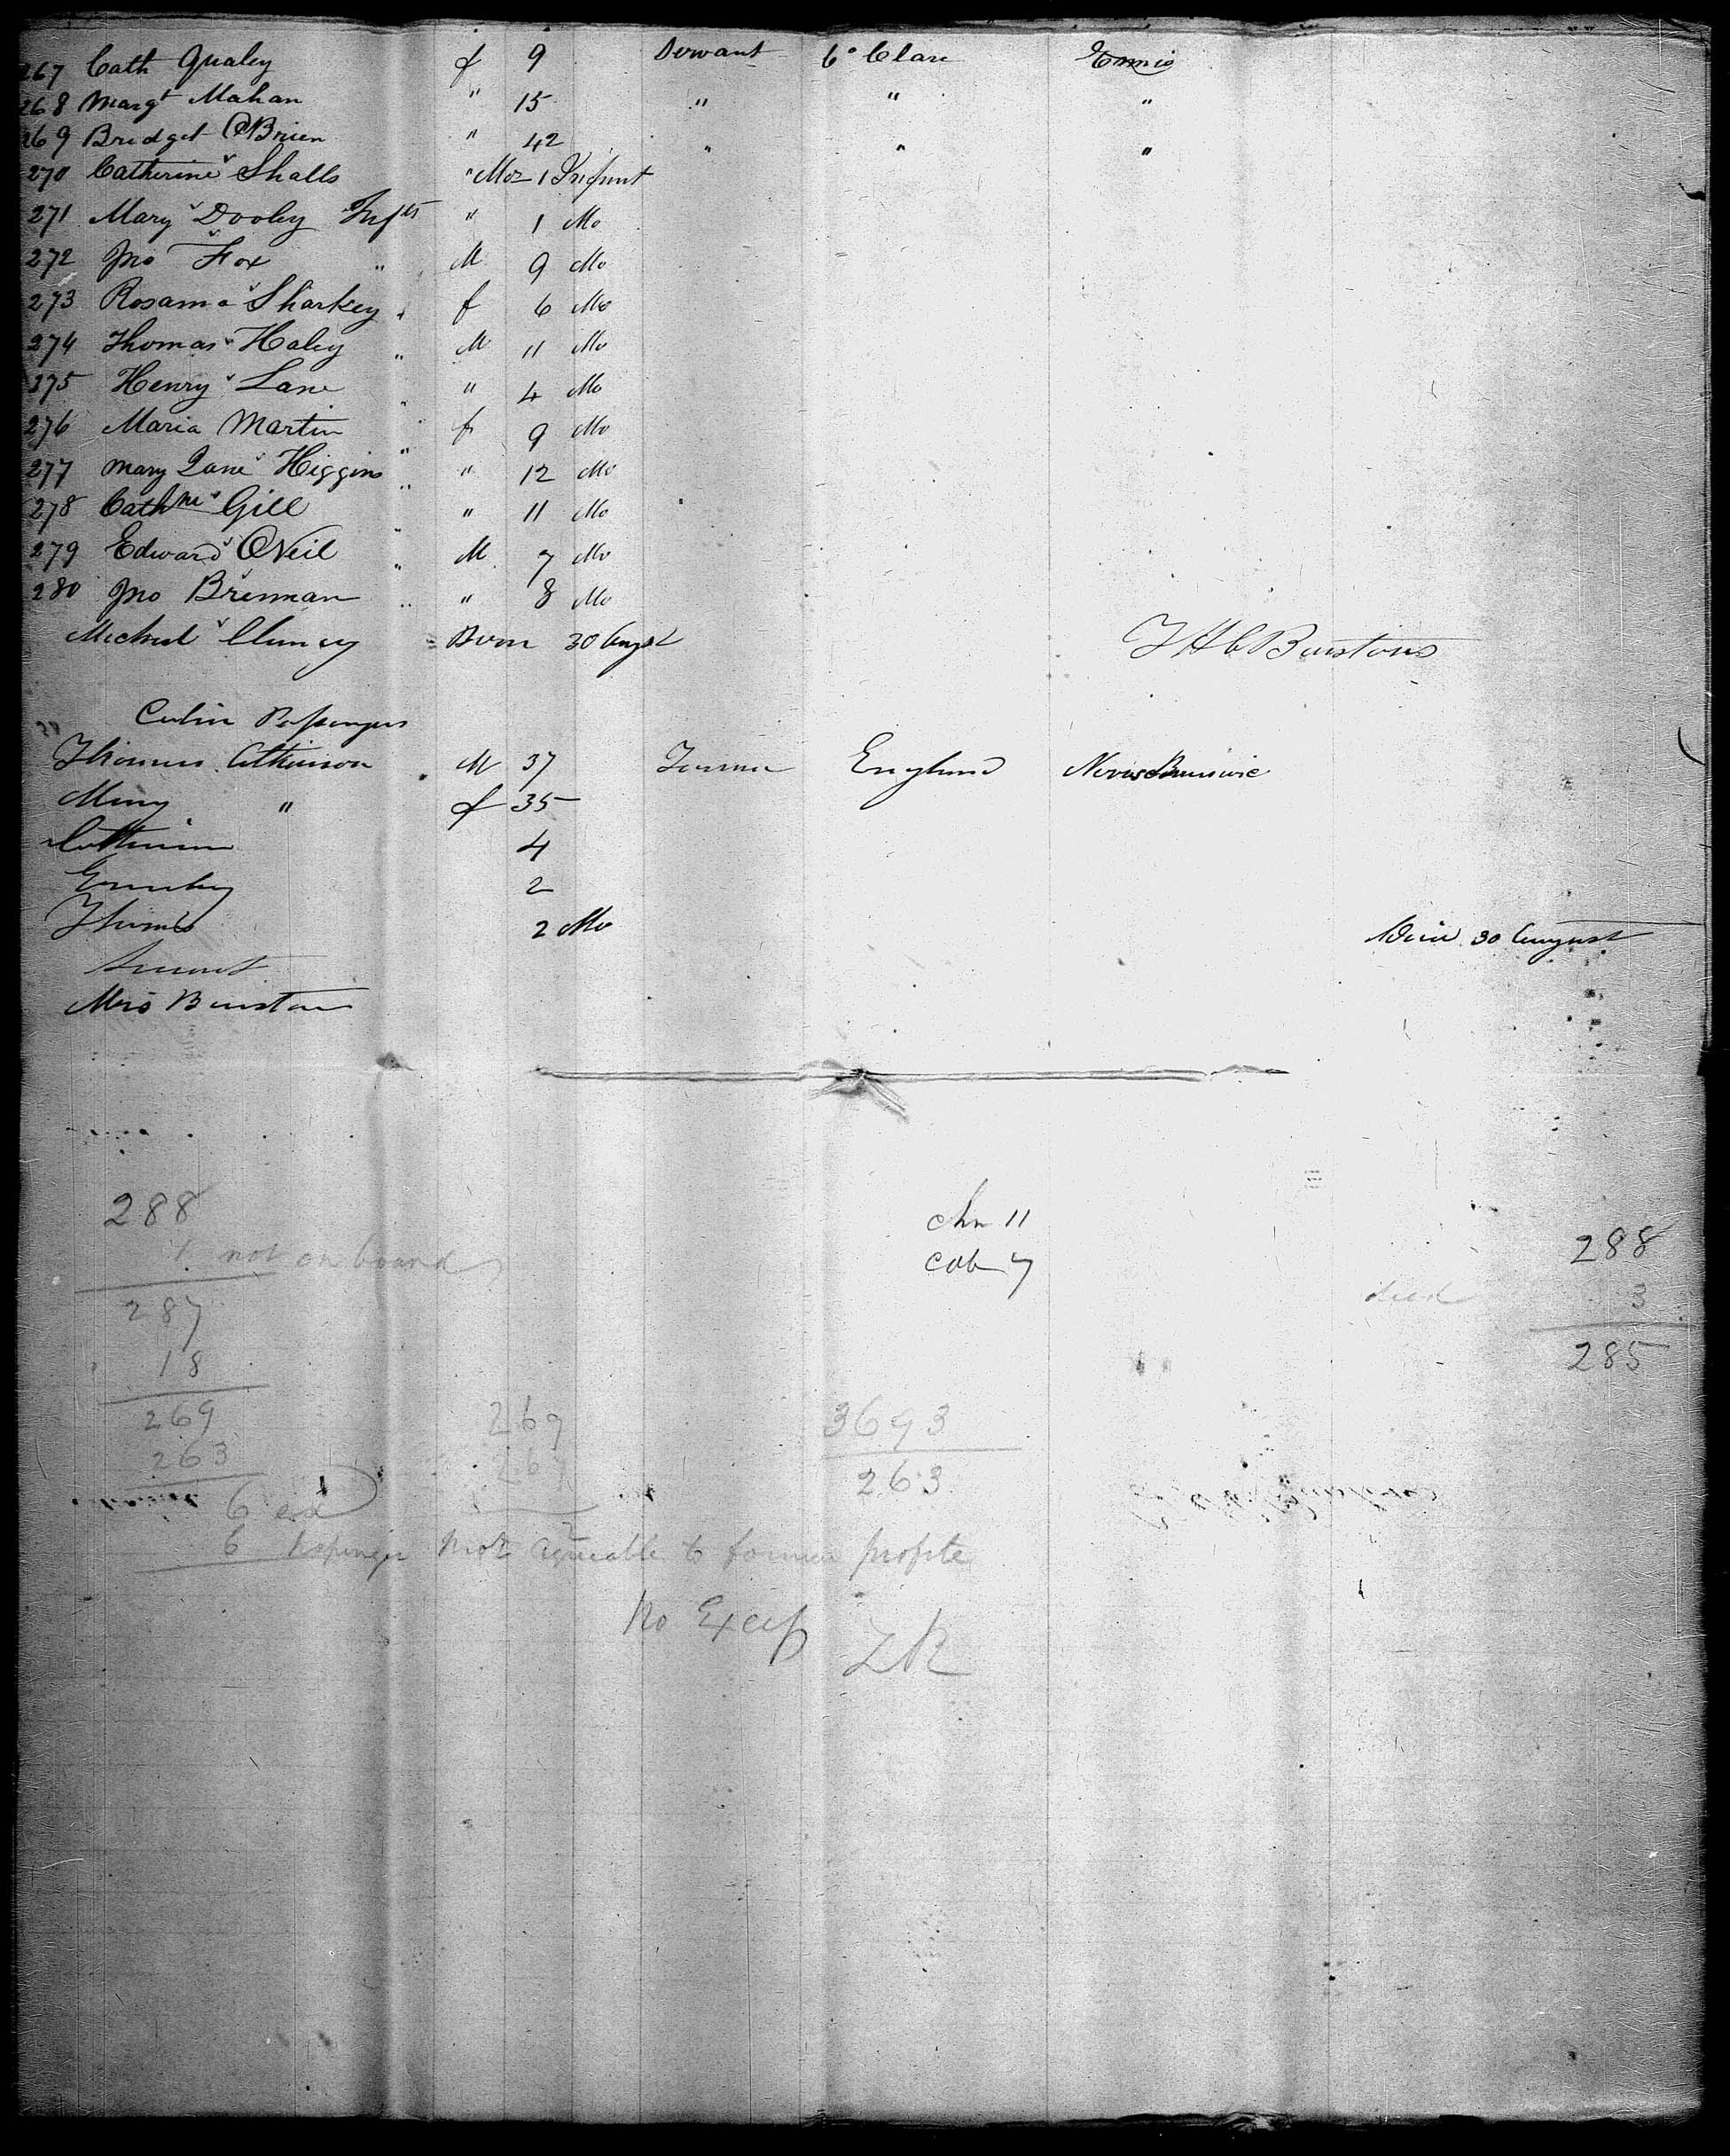 267 Cath Qualey f 9 Servant Co Clare Ennis
268 Margt Mahan " 15 " " "
269 Bridget O'Brien " 42 " " "
270 Catherine Shalls " Mos 1 Infant
271 Mary Dooley Infts " 1 Mo
272 Jno Fox " M 9 Mo
273 Rosanna Sharkey " f 6 Mo
274 Thomas Haley " M 11 Mo
275 Henry Lane " " 4 Mo
276 Maria Martin " f 9 Mo
277 Mary Jane Higgins " " 12 Mo
278 Cathne Gill " " 11 Mo
279 Edward ONeil " M 7 Mo
280 Jno Brennan " " 8 Mo
Michael Clancy Born 30 Augst
Cabin Passengers
Thomas Atkinson M 37 Farmer England
Mary " f 35
Catherine 4
2
Thomas 2 Mo 30 August
Servant
Mrs
288
1 not on board
287
18
269
263
6
chn 11
cab 7
288
died 3
285
269
3693
263
6 Passenger not agreeable to former
No Excep